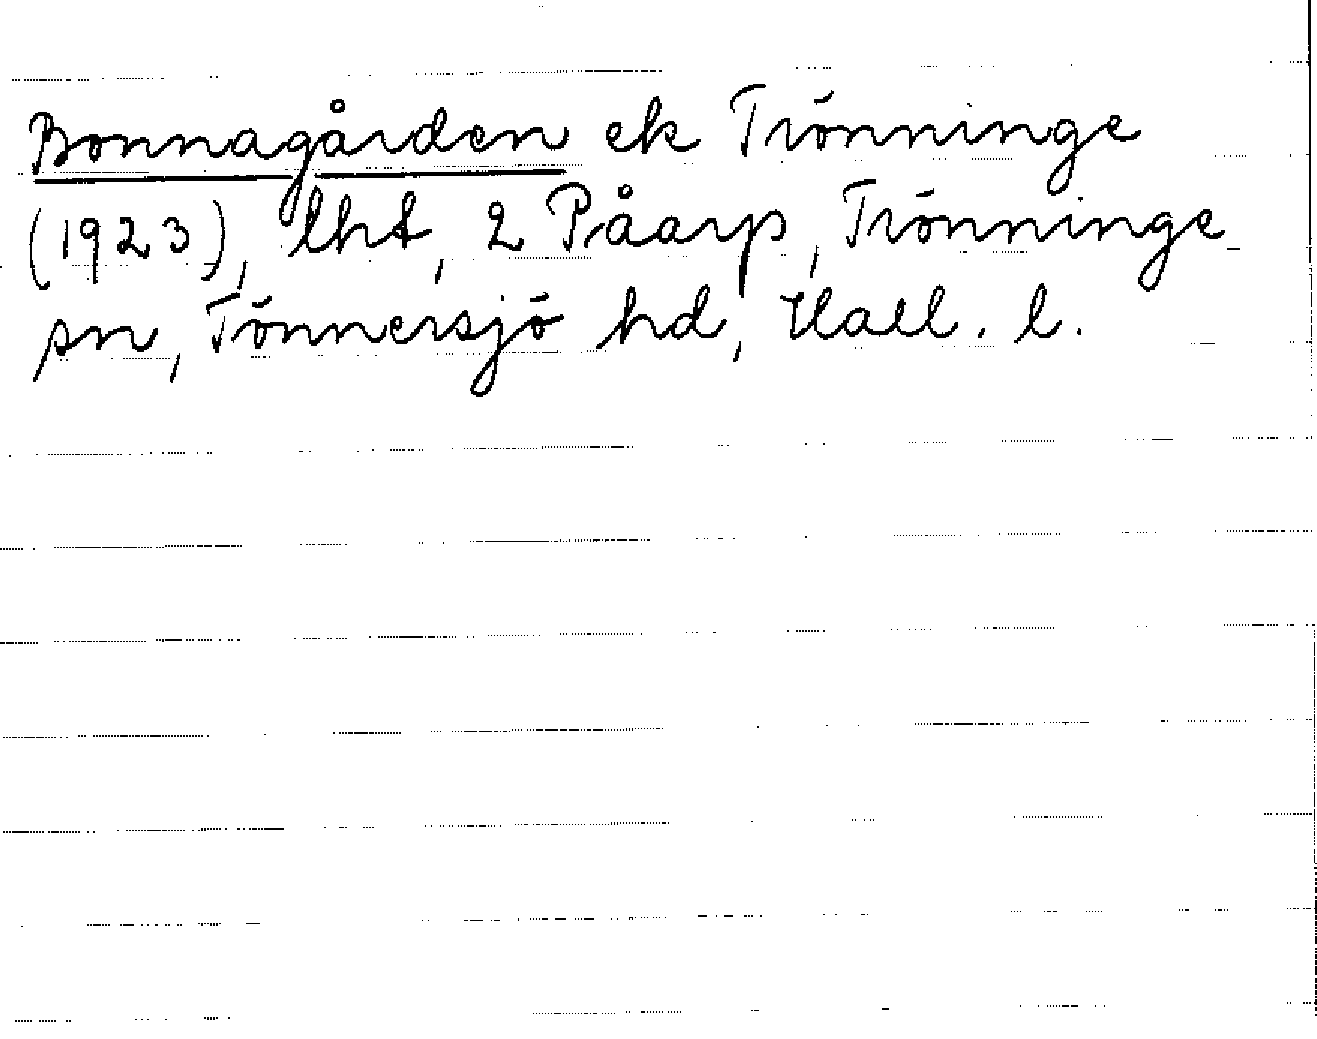 Bonnagården ek Trönninge
(1923), lht, 2 Påarp, Trönninge
sn, Tönnersjö hd, Hall. l.